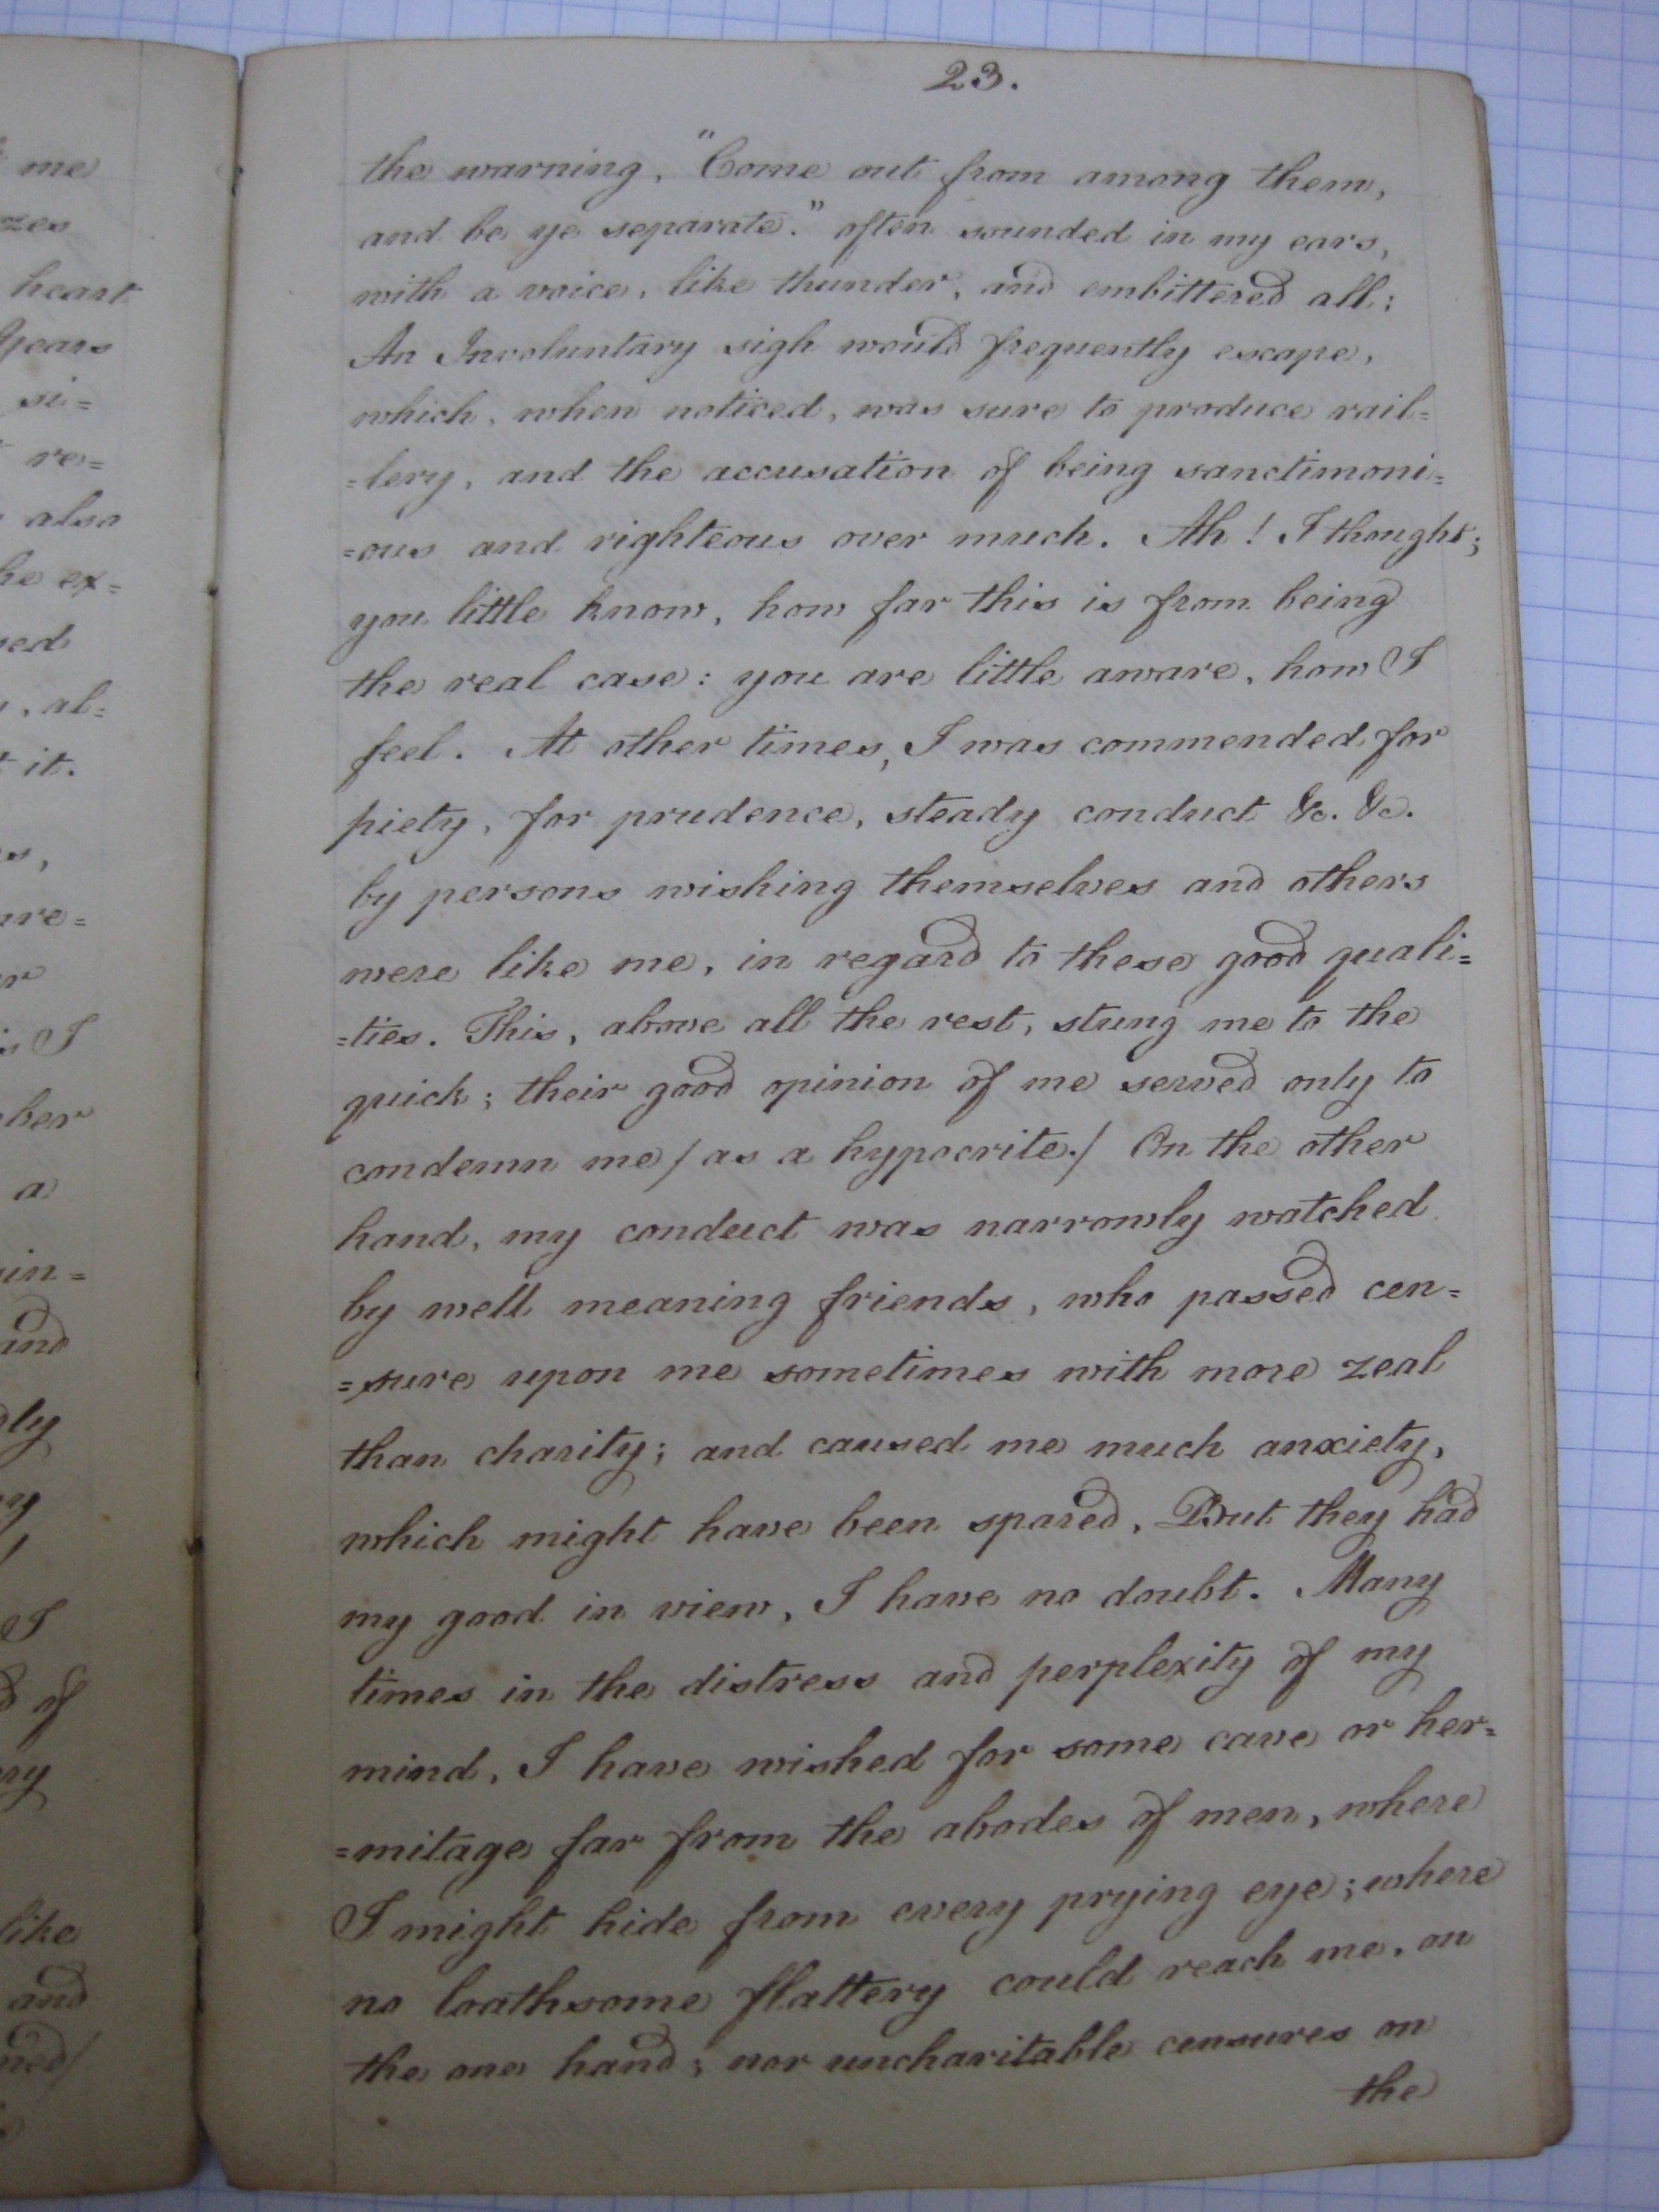 me
zes
heart
years
si=
re=
also
he ex=
ed
, al=
t it.
s,
ure=
r
is I
ber
a
in=
and
ly
ry
I
of
ry
like
and
ned/
23.
the warning, "Come out from among them,
and be ye separate." often sounded in my ears,
with a voice, like thunder, and embittered all:
An Involuntary sigh would frequently escape,
which, when noticed, was sure to produce rail=
=lery, and the accusation of being sanctimoni=
=ous and righteous over much. Ah! I thought;
you little know, how far this is from being
the real case: you are little aware, how I
feel. At other times, I was commended for
piety, for prudence, steady conduct &c. &c.
by persons wishing themselves and others
were like me, in regard to these good quali=
=ties. This, above all the rest, stung me to the
quick; their good opinion of me served only to
condemn me / as a hypocrite./ On the other
hand, my conduct was narrowly watched
by well meaning friends, who passed cen=
=sure upon me sometimes with more zeal
than charity; and caused me much anxiety,
which might have been spared, But they had
my good in view, I have no doubt. Many
times in the distress and perplexity of my
mind, I have wished for some cave or her=
=mitage far from the abodes of men, where
I might hide from every prying eye; where
no loathsome flattery could reach me, on
the one hand; nor uncharitable censures on
the